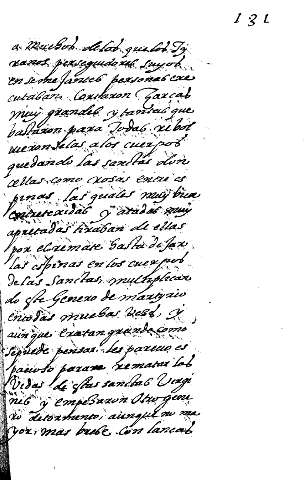 131
a muchos de los que los Ty
ranos perseguidores suyos
en semejantes personas exe
cutaban. Cortaron Zarças
muy grandes y tantas que
bastaron para todas
las a los cuerpos
quedando las sanctas don
cellas como rosas entre es
pinas las quales muy bien
entretexidas y atadas muy
apretadas tiraban de ellas
por el remate hasta dejar
las espinas en los cuerpos
de las sanctas, multiplican
do este Genero de martyrio
en todas muchas vezes, y
aunque era tan grande como
se puede pensar, les parecio es
pacioso para rematar las
vidas de estas sanctas Virgi
nes y empeçaron otro gene
ro de tormento, aunque no ma
yor, mas brebe con lanças